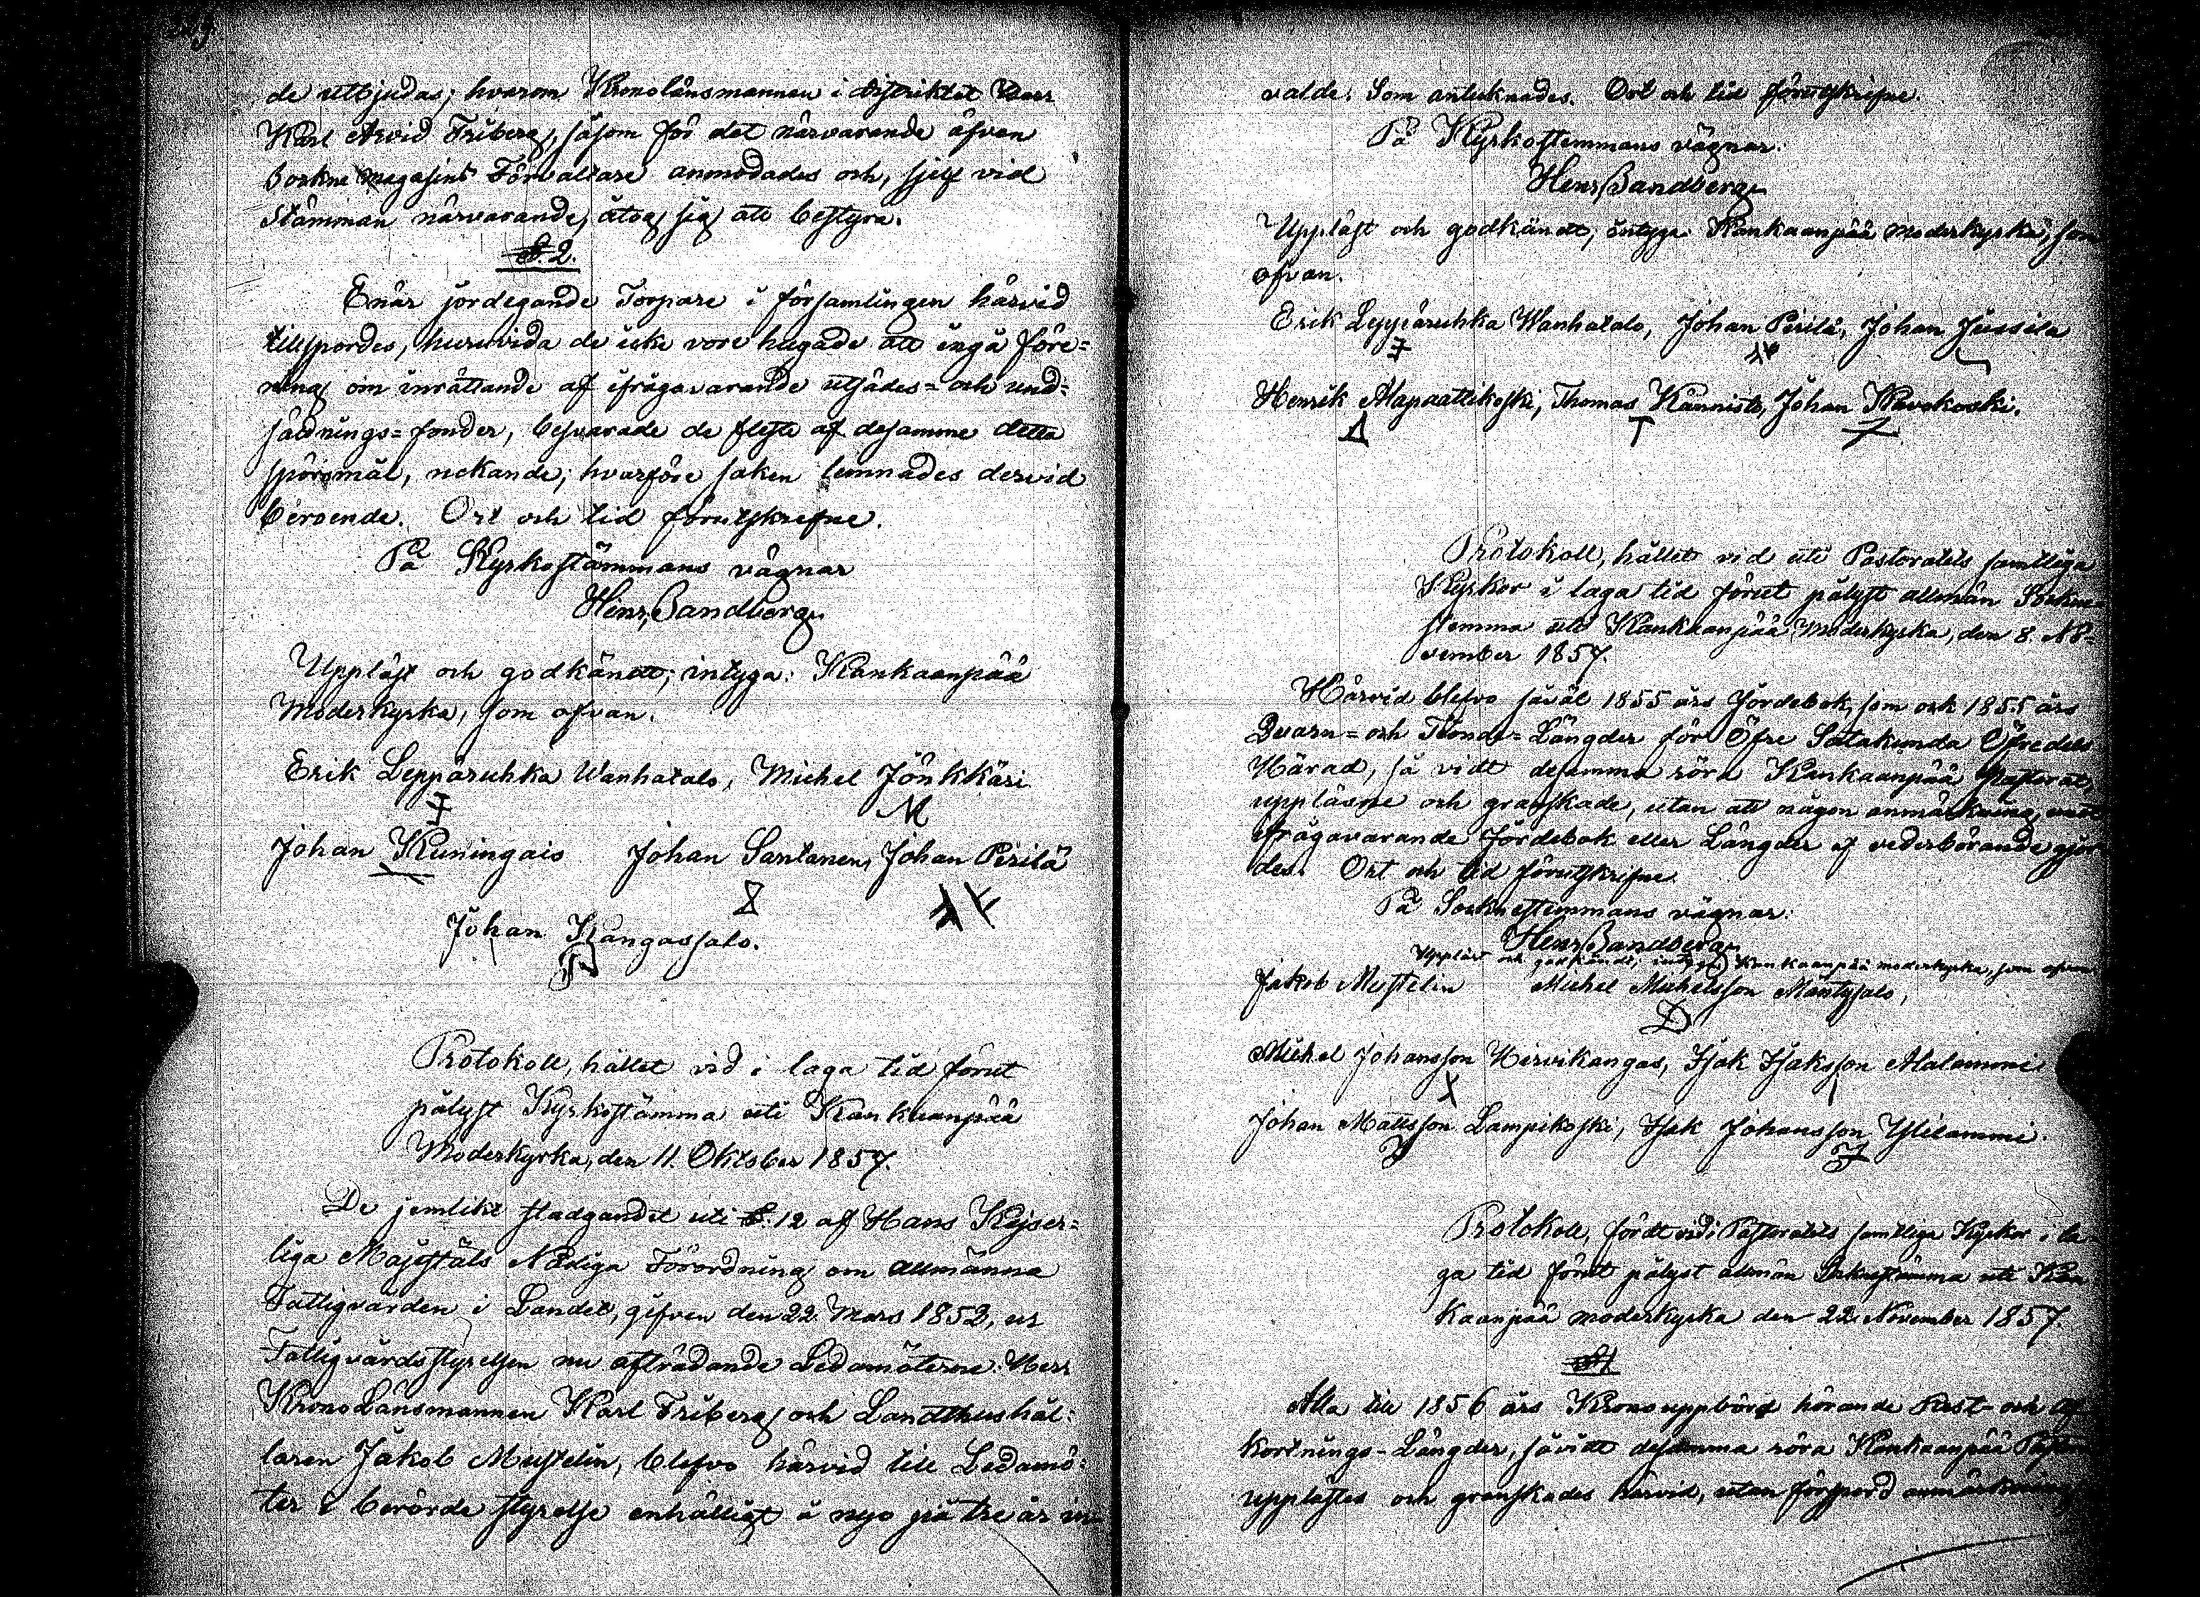 de utbjudas; hvarom Kronolänsmannen i distriktet Herr
Karl Arvid Friberg, såsom för det närvarande äfven
Sockne magasins Förvaltare anmodades och, sjelf vid
Stämman närvarande, åtog sig att bestyra.
§. 2.
Enär jordegande Torpare i församlingen härvid
tillspordes, huruvida de icke vore hugade att ingå före-
ning om inrättande af ifrågavarande utsädes- och und-
sädnings-fonder, besvarade de fleste af desamme detta
spörsmål, nekande; hvarföre saken lemnades dervid
beroende. Ort och tid förutskrefne.
På Kyrkostämmans vägnar
Henr. Sandberg
Uppläst och godkändt; intyga: Kankaanpää
Moderkyrka, som ofvan.
Erik Leppäruhka Wanhatalo, Michel Jönkkäri
M
Johan Kuningais Johan Santanen, Johan Perilä
Johan Kangassalo.
Protokoll, hållet vid i laga tid förut
pålyst Kyrkostämma uti Kankaanpää
Moderkyrka, den 11. Oktober 1857.
De jemlikt stadgandet uti §. 12 af Hans Kejser-
liga Majestäts Nådiga Förordning om allmänna
Fattigvården i Landet, gifven den 22 Mars 1852, ur
Fattigvårdsstyrelsen nu afträdande Ledamöterne: Herr
Krono Länsmannen Karl Friberg och Landthushål-
laren Jakob Mustelin, blefvo härvid till Ledamö-
ter i berörde styrelse enhälligt å nyo på tre år in
valde. Som antecknades. Ort och tid förutskrifne.
På Kyrkostemmans vägnar:
Henr. Sandberg
Uppläst och godkändt, intyga Kankaanpää moderkyrka, som
ofvan.
Erik Leppäruhka Wanhatalo, Johan Perilä, Johan Jussila
Henrik Alapaattikoski, Thomas Kannisto, Johan
Protokoll, hållet vid uti Pastoratets samtliga
Kyrkor i laga tid förut pålyst allmän Sockne-
stemma uti Kankaanpää Moderkyrka, den 8. No-
vember 1857.
Härvid blefvo såväl 1855 års Jordebok, som ock 1855 års
Qvarn- och Tionde-Längder för Öfre Satakunda Öfredels
Härad, så vidt desamma röra Kankaanpää Pastorat,
uppläsne och granskade, utan att någon anmärkning mot
ifrågavarande Jordebok eller Längder af vederbörande gjor
des. Ort och tid förutskrifne.
På Socknestemmans vägnar:
Henr. Sandberg
Uppläst och godkändt, intyga Kankaanpää moderkyrka, som ofvan
Jakob Mustelin Michel Michelsson Mäntysalo,
Michel Johansson Hirvikangas, Isak Isaksson Alalammi
Johan Mattsson Lampikoski, Isak Johansson Ylilammi.
Protokoll, fördt vid i Pastoratets samtliga Kyrkor i la
ga tid förut pålyst allmän Socknestämma uti Kan
kaanpää moderkyrka den 22 November 1857.
§1
Alla till 1856 års Kronouppbörd hörande Rest- och Af
kortnings-Längder, såvidt desamma röra Kankaanpää
upplästes och granskades härvid, utan förspord anmärkning